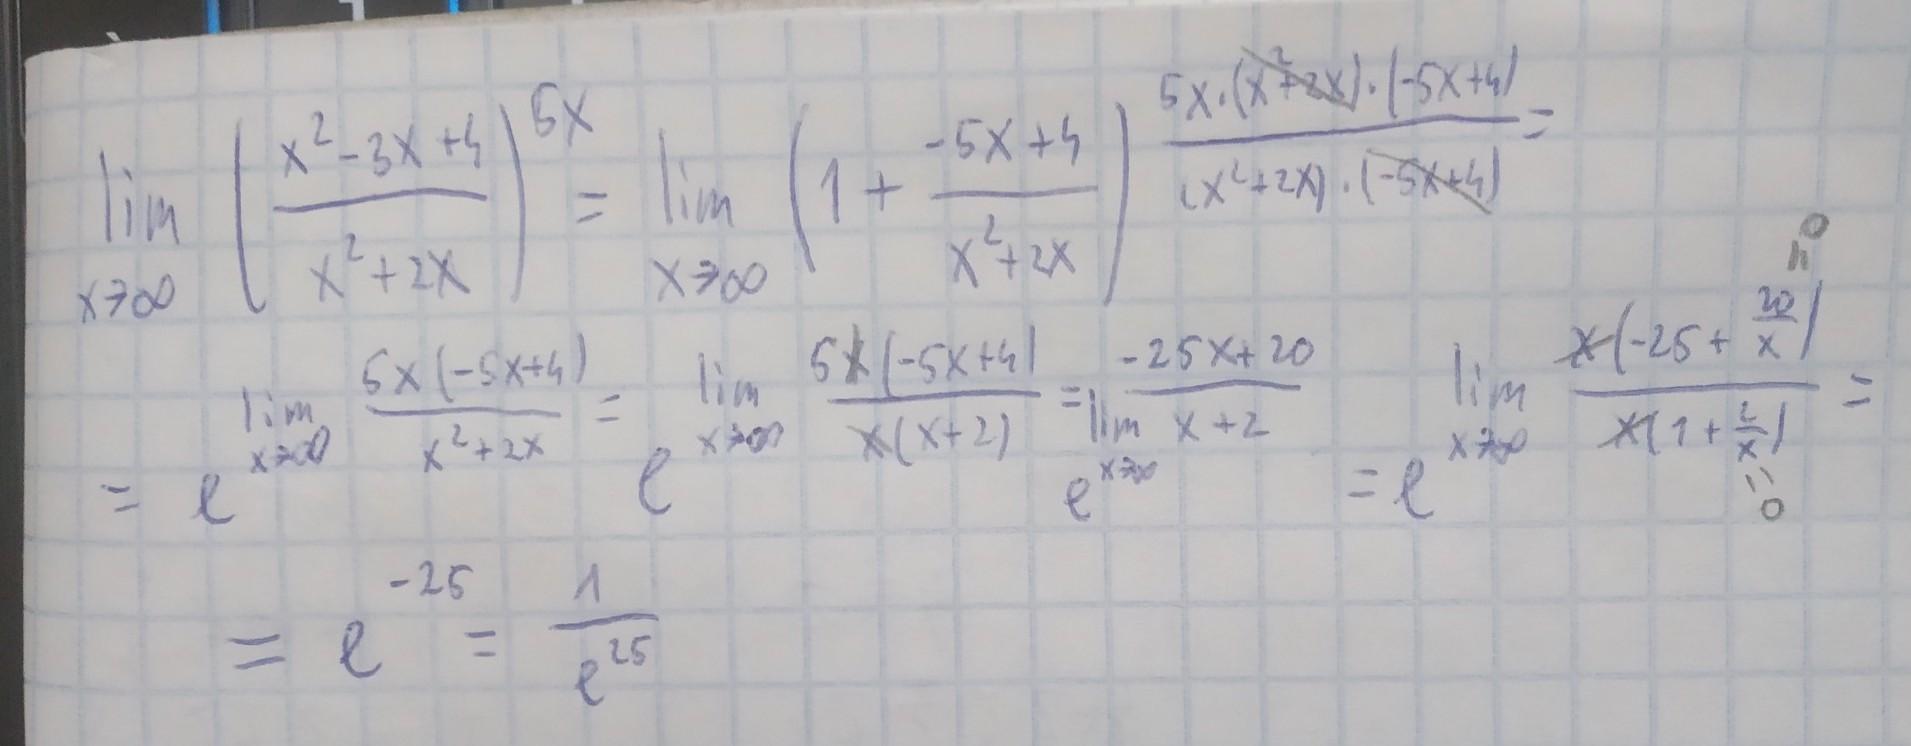 lim x→∞ ( (x² - 3x + 4) / (x² + 2x) )^(5x) = lim x→∞ ( 1 + (-5x + 4) / (x² + 2x) )^( 5x·(x² + 2x)·(-5x + 4) / (x² + 2x)·(-5x + 4) ) =
= e^( lim x→∞ 5x(-5x + 4) / (x² + 2x) ) = e^( lim x→∞ 5x(-5x + 4) / x(x + 2) ) = e^( lim x→∞ (-25x + 20) / (x + 2) ) = e^( lim x→∞ x(-25 + 20/x) / x(1 + 2/x) ) =
= e^(-25) = 1 / e^25